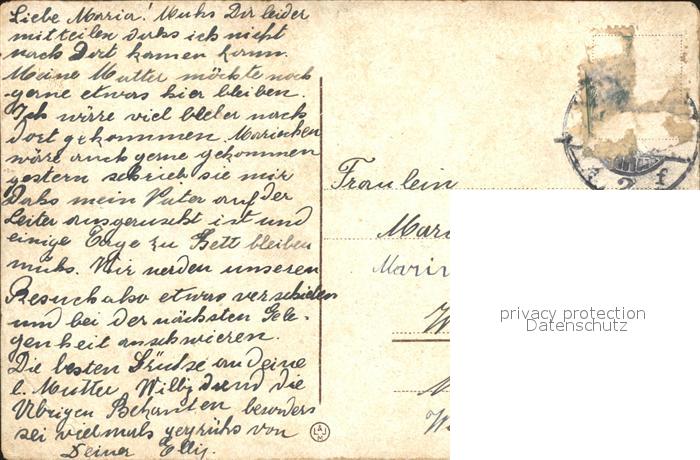 Liebe Maria! Muhs Dir leider
mitteilen dahs ich nicht
nach Dort komen kann.
Meine Mutter möchte noch
gerne etwas hier bleiben.
Ich wäre viel lieber nach
Dort gekommen. Marinchen
wäre auch gerne gekommen
gestern schrieb sie mir
Dahs mein Vater auf der
Leiter ausgeruscht ist und
einige Tage zu Bett bleiben
muhs. Wir werden unseren
Besuch also etwas verschieben
und bei der nächsten Gele-
genheit anschwieren.
Die besten Grüse an deine
l. Mutter, Willy und die
Übrigen Bekanten besonders
sei vielmals gegrühs von
Deiner Elly.
Fraulein
privacy protection
Datenschutz